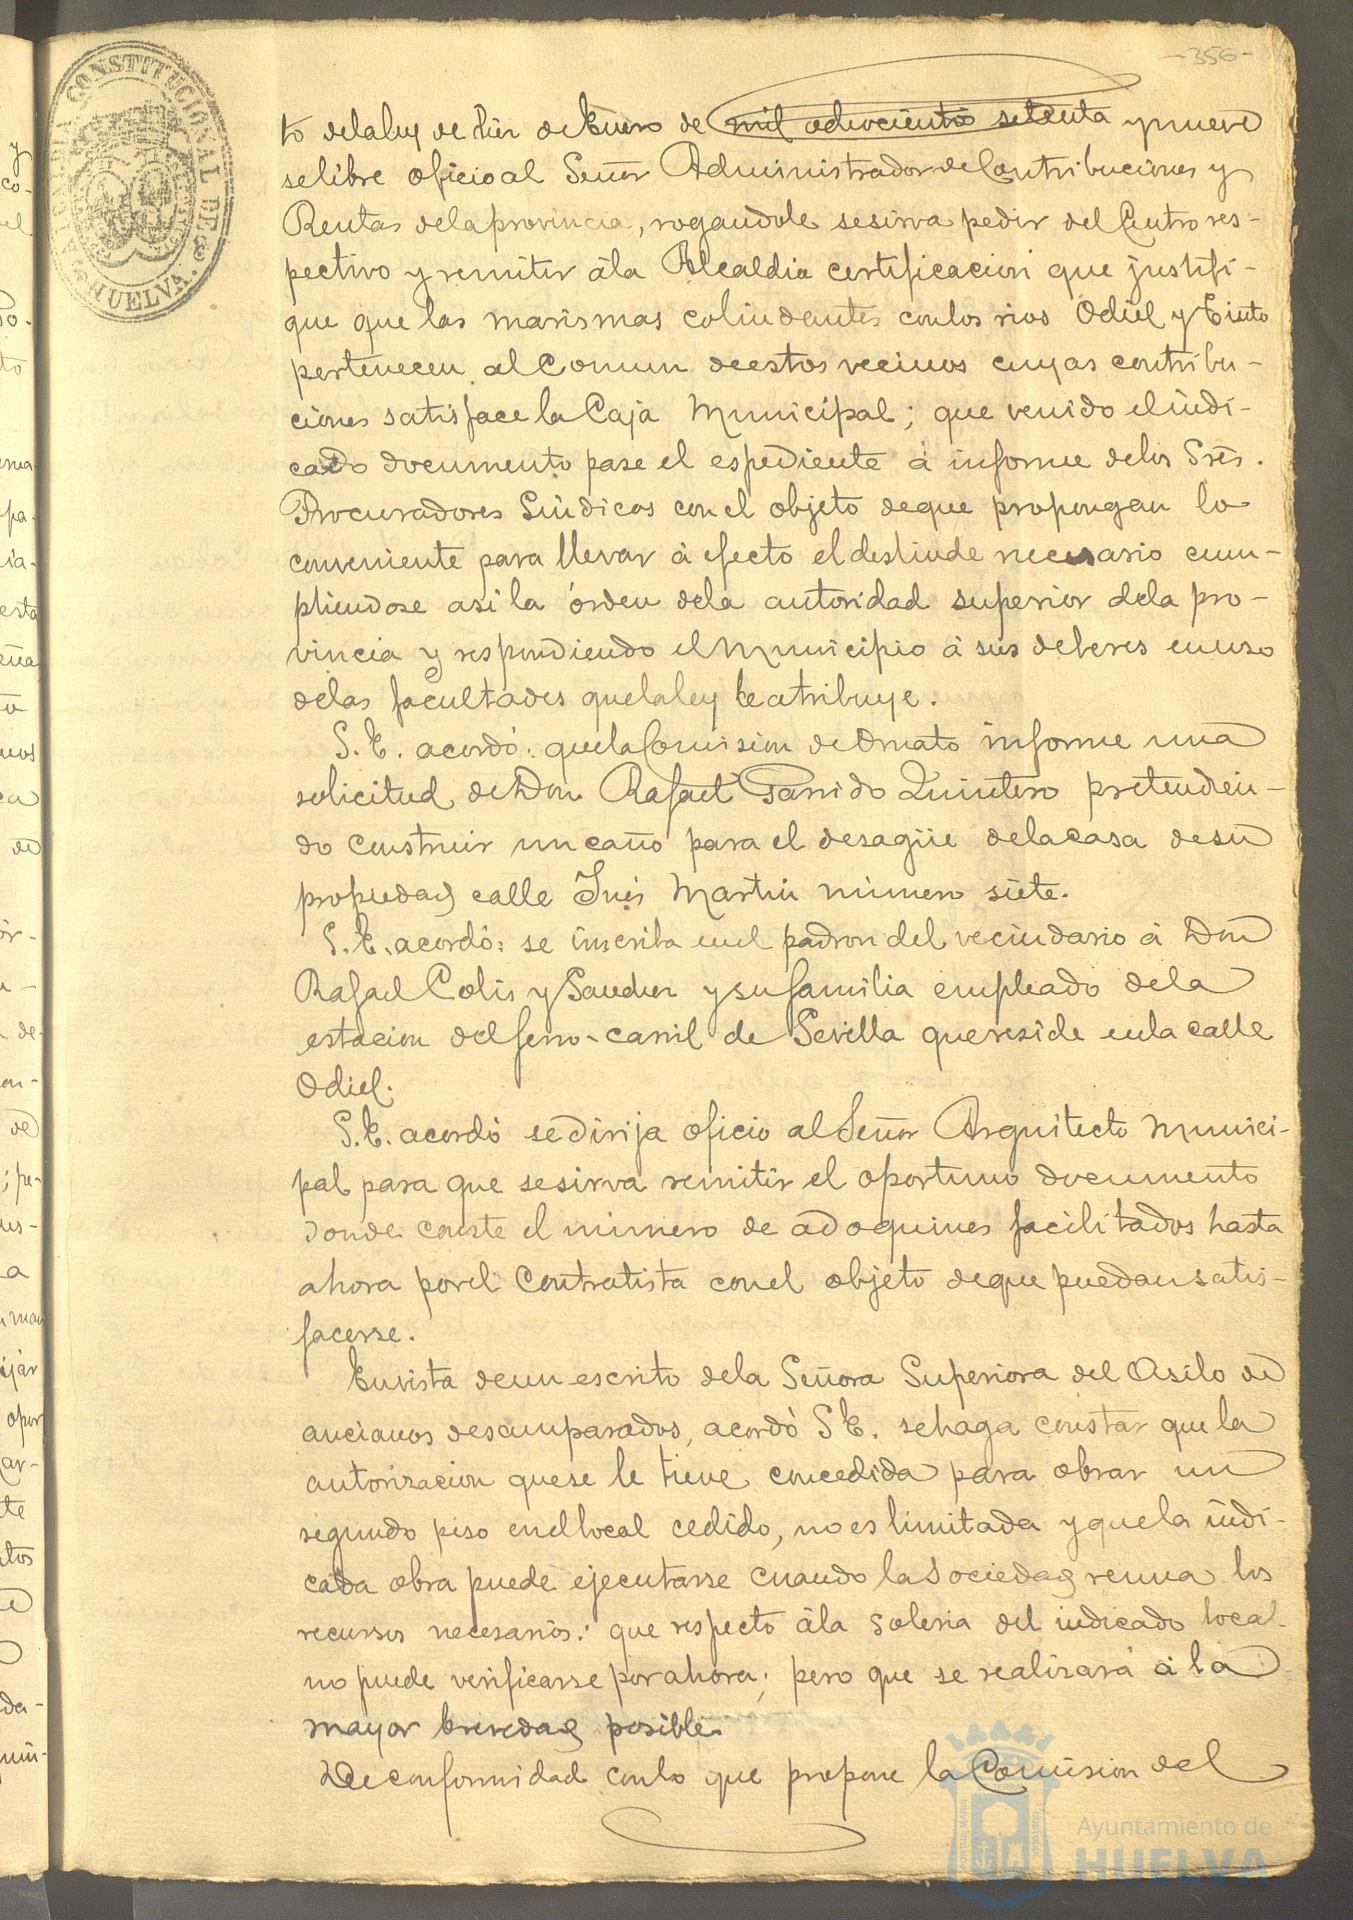 -356-
ALCALDIA CONSTITUCIONAL DE HUELVA.
to dela ley de diez de Enero de mil ochocientos setenta y nueve
se libre oficio al Señor Administrador de Contribuciones y
Rentas dela provincia, rogandole se sirva pedir del Centro res-
pectivo y remitir á la Alcaldia certificacion que justifi-
que que las marismas colindantes con los rios Odiel y Tinto
pertenecen al Comun de estos vecinos cuyas contribu-
ciones satisface la Caja Municipal; que venido el indi-
cado documento pase el espediente á informe delos Sres.
Procuradores Sindicos con el objeto de que propongan lo
conveniente para llevar á efecto el deslinde necesario cum-
pliendose asi la órden dela autoridad superior dela pro-
vincia y respondiendo el Municipio á sus deberes en uso
delas facultades que la ley le atribuye.
S. E. acordó: que la Comision de Ornato informe una
solicitud de Don Rafael Garrido Quintero pretendien-
do construir un caño para el desagüe dela casa de su
propiedad calle Inés Martin número siete.
S. E. acordó: se inscriba en el padron del vecindario á Don
Rafael Colis y Sanchez y su familia empleado dela
estacion del ferro-carril de Sevilla que reside en la calle
Odiel.
S. E. acordó se dirija oficio al Señor Arquitecto Munici-
pal para que se sirva remitir el oportuno documento
donde conste el número de adoquines facilitados hasta
ahora por el Contratista con el objeto de que puedan satis-
facerse.
En vista de un escrito dela Señora Superiora del Asilo de
ancianos desamparados, acordó S E. se haga constar que la
autorizacion que se le tiene concedida para obrar un
segundo piso en el local cedido, no es limitada y que la indi-
cada obra puede ejecutarse cuando la Sociedad reuna los
recursos necesarios: que respecto á la soleria del indicado local
no puede verificarse por ahora; pero que se realizará á la
mayor brevedad posible.
De conformidad con lo que propone la Comision del
Ayuntamiento de
HUELVA